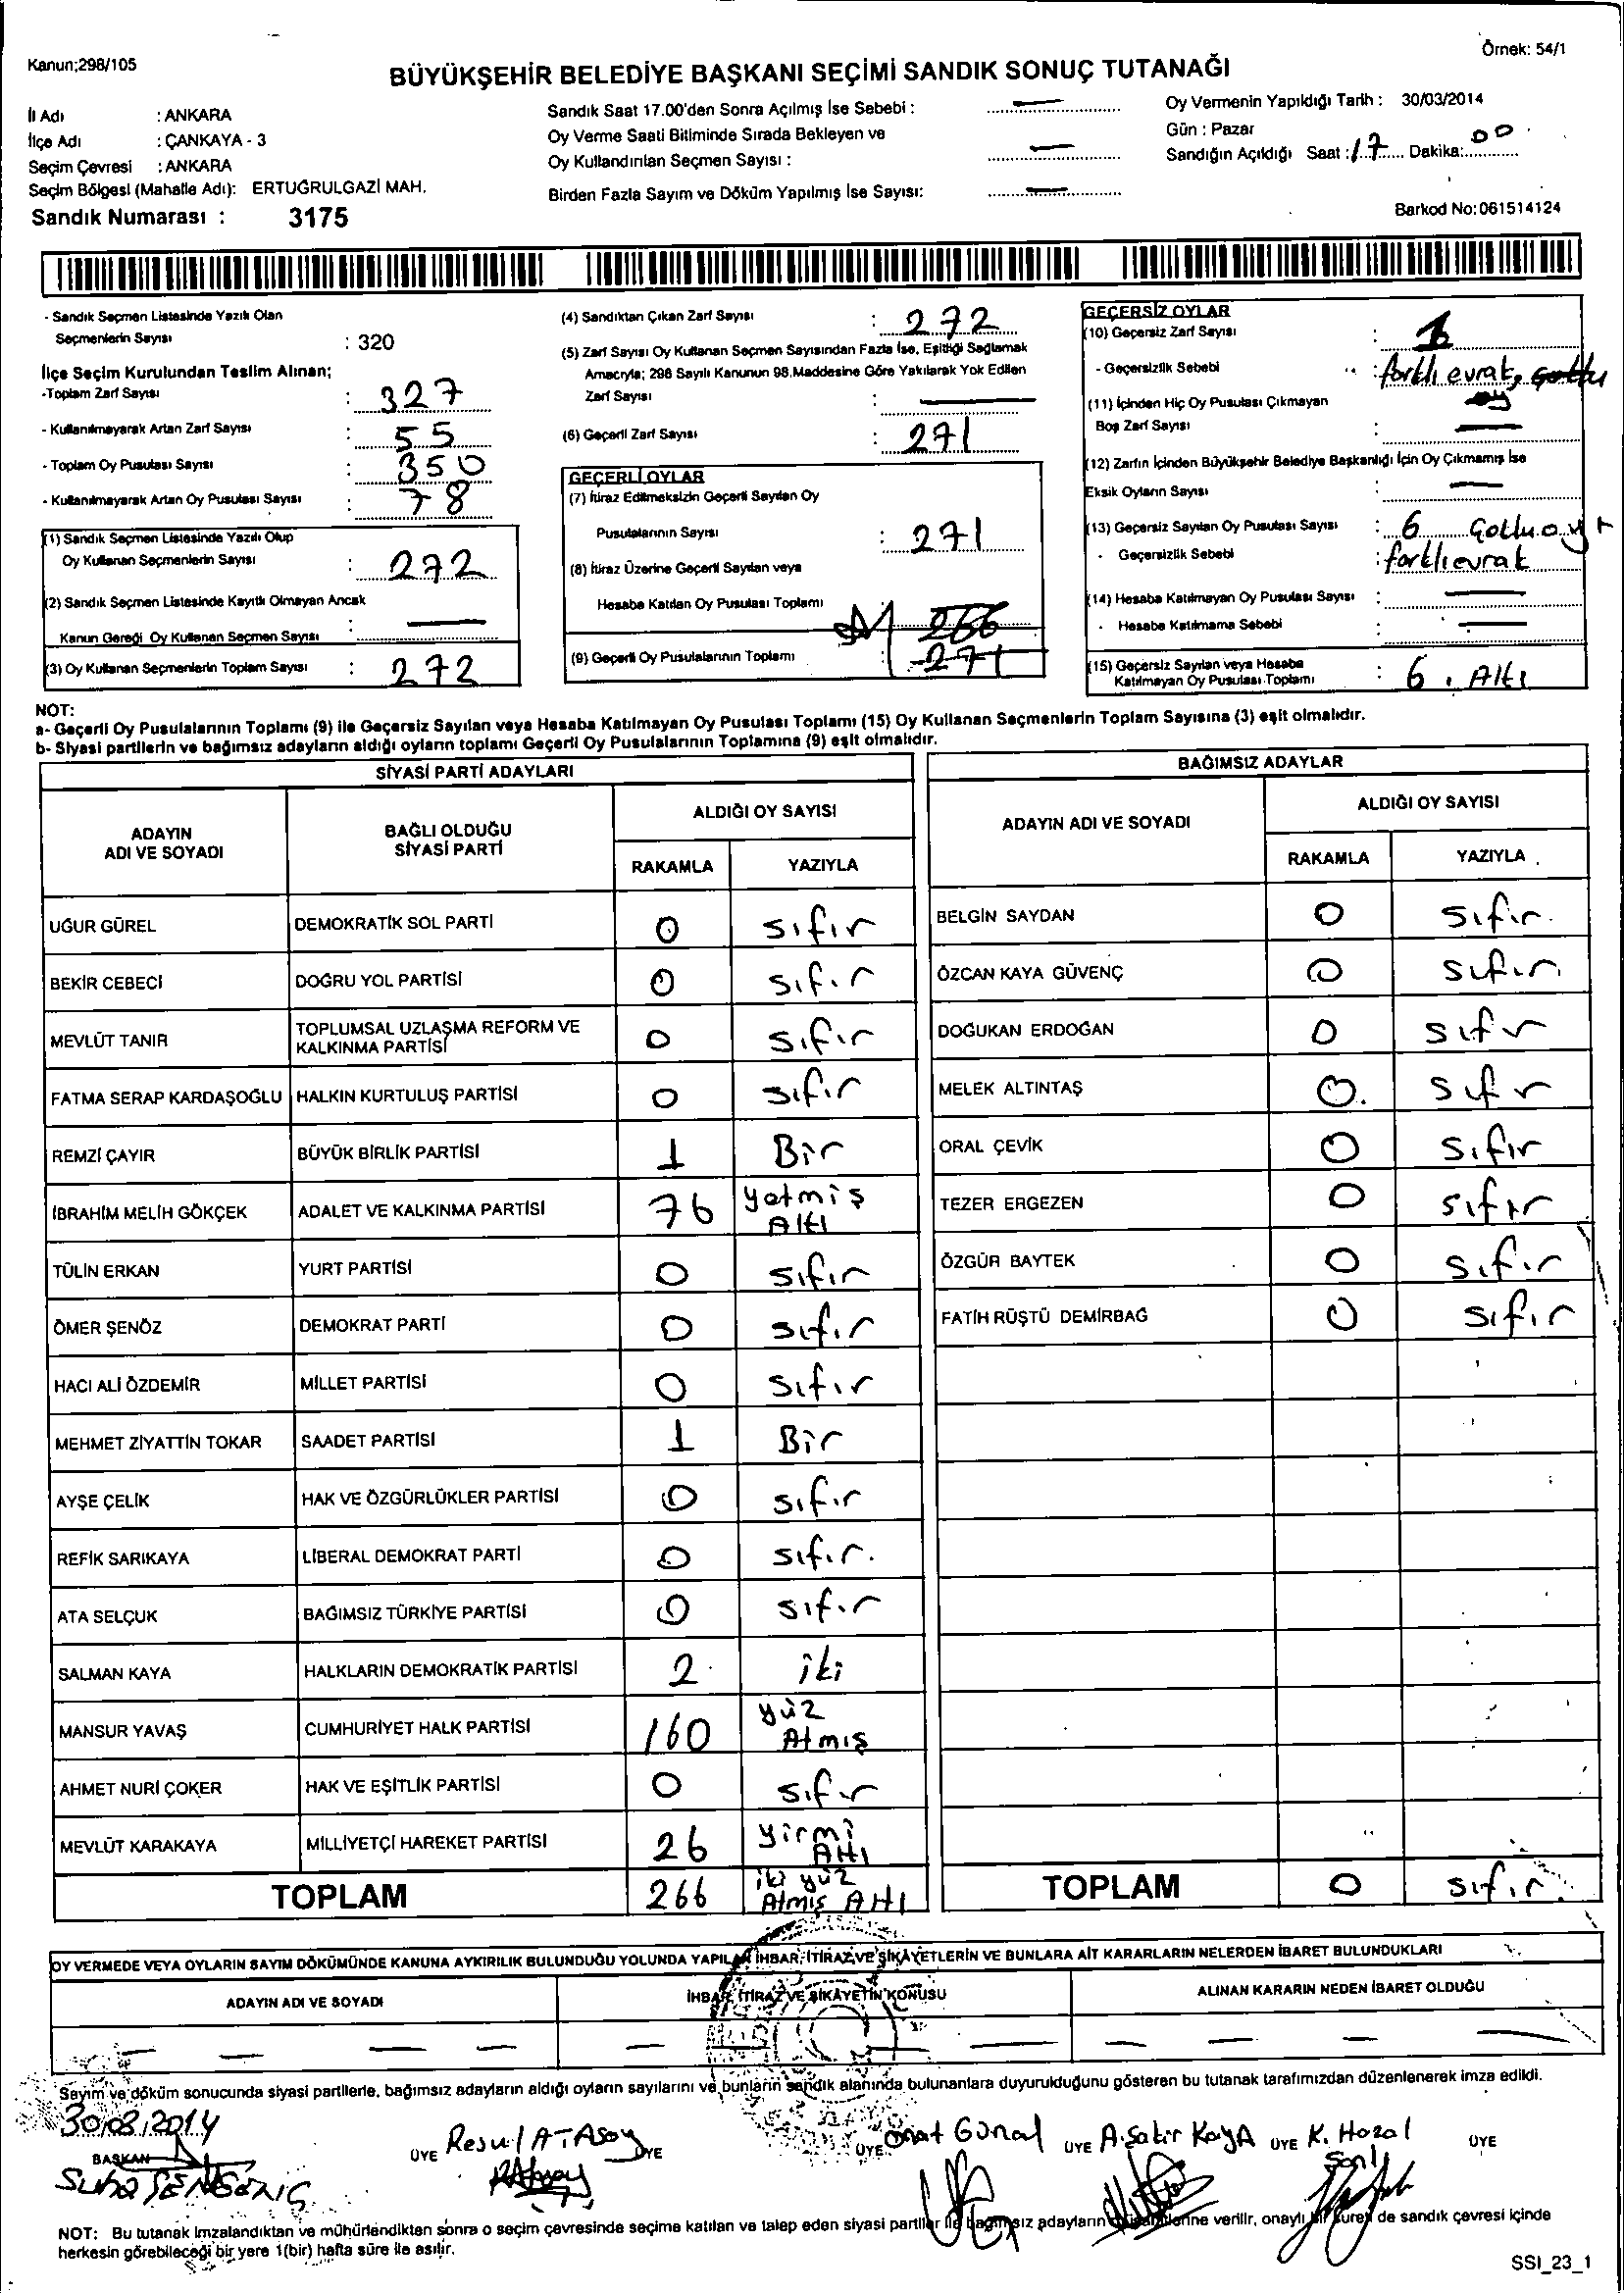 Kanun;298/105
Örnek: 54/1
BÜYÜKŞEHİR BELEDİYE BAŞKANI SEÇİMİ SANDIK SONUÇ TUTANAĞI
İl Adı : ANKARA
İlçe Adı : ÇANKAYA - 3
Seçim Çevresi : ANKARA
Seçim Bölgesi (Mahalle Adı): ERTUĞRULGAZİ MAH.
Sandık Numarası : 3175
Sandık Saat 17.00'den Sonra Açılmış İse Sebebi : —
Oy Verme Saati Bitiminde Sırada Bekleyen ve
Oy Kullandırılan Seçmen Sayısı : —
Birden Fazla Sayım ve Döküm Yapılmış İse Sayısı: —
Oy Vermenin Yapıldığı Tarih : 30/03/2014
Gün : Pazar
Sandığın Açıldığı Saat : 17 Dakika: 00
Barkod No:061514124
- Sandık Seçmen Listesinde Yazılı Olan
Seçmenlerin Sayısı : 320
İlçe Seçim Kurulundan Teslim Alınan;
-Toplam Zarf Sayısı : 327
- Kullanılmayarak Artan Zarf Sayısı : 55
- Toplam Oy Pusulası Sayısı : 350
- Kullanılmayarak Artan Oy Pusulası Sayısı : 78
(1) Sandık Seçmen Listesinde Yazılı Olup
Oy Kullanan Seçmenlerin Sayısı : 272
(2) Sandık Seçmen Listesinde Kayıtlı Olmayan Ancak
Kanun Gereği Oy Kullanan Seçmen Sayısı : —
(3) Oy Kullanan Seçmenlerin Toplam Sayısı : 272
(4) Sandıktan Çıkan Zarf Sayısı : 272
(5) Zarf Sayısı Oy Kullanan Seçmen Sayısından Fazla İse, Eşitliği Sağlamak
Amacıyla; 298 Sayılı Kanunun 98.Maddesine Göre Yakılarak Yok Edilen
Zarf Sayısı : —
(6) Geçerli Zarf Sayısı : 271
GEÇERLİ OYLAR
(7) İtiraz Edilmeksizin Geçerli Sayılan Oy
Pusulalarının Sayısı : 271
(8) İtiraz Üzerine Geçerli Sayılan veya
Hesaba Katılan Oy Pusulası Toplamı 266
(9) Geçerli Oy Pusulalarının Toplamı : 271
GEÇERSİZ OYLAR
(10) Geçersiz Zarf Sayısı : 1
- Geçersizlik Sebebi : farklı evrak,
(11) İçinden Hiç Oy Pusulası Çıkmayan
Boş Zarf Sayısı : —
(12) Zarfın İçinden Büyükşehir Belediye Başkanlığı İçin Oy Çıkmamış İse
Eksik Oyların Sayısı : —
(13) Geçersiz Sayılan Oy Pusulası Sayısı : 6
- Geçersizlik Sebebi : farklı evrak
(14) Hesaba Katılmayan Oy Pusulası Sayısı : —
- Hesaba Katılmama Sebebi : —
(15) Geçersiz Sayılan veya Hesaba
Katılmayan Oy Pusulası Toplamı : 6. Altı
NOT:
a- Geçerli Oy Pusulalarının Toplamı (9) ile Geçersiz Sayılan veya Hesaba Katılmayan Oy Pusulası Toplamı (15) Oy Kullanan Seçmenlerin Toplam Sayısına (3) eşit olmalıdır.
b- Siyasi partilerin ve bağımsız adayların aldığı oyların toplamı Geçerli Oy Pusulalarının Toplamına (9) eşit olmalıdır.
SİYASİ PARTİ ADAYLARI
ADAYIN ADI VE SOYADI BAĞLI OLDUĞU SİYASİ PARTİ ALDIĞI OY SAYISI
RAKAMLA YAZIYLA
UĞUR GÜREL DEMOKRATİK SOL PARTİ 0 sıfır
BEKİR CEBECİ DOĞRU YOL PARTİSİ 0 sıfır
MEVLÜT TANIR TOPLUMSAL UZLAŞMA REFORM VE KALKINMA PARTİSİ 0 sıfır
FATMA SERAP KARDAŞOĞLU HALKIN KURTULUŞ PARTİSİ 0 sıfır
REMZİ ÇAYIR BÜYÜK BİRLİK PARTİSİ 1 Bir
İBRAHİM MELİH GÖKÇEK ADALET VE KALKINMA PARTİSİ 76 yetmiş Altı
TÜLİN ERKAN YURT PARTİSİ 0 sıfır
ÖMER ŞENÖZ DEMOKRAT PARTİ 0 sıfır
HACI ALİ ÖZDEMİR MİLLET PARTİSİ 0 sıfır
MEHMET ZİYATTİN TOKAR SAADET PARTİSİ 1 Bir
AYŞE ÇELİK HAK VE ÖZGÜRLÜKLER PARTİSİ 0 sıfır
REFİK SARIKAYA LİBERAL DEMOKRAT PARTİ 0 sıfır.
ATA SELÇUK BAĞIMSIZ TÜRKİYE PARTİSİ 0 sıfır
SALMAN KAYA HALKLARIN DEMOKRATİK PARTİSİ 2 iki
MANSUR YAVAŞ CUMHURİYET HALK PARTİSİ 160 yüz Atmış
AHMET NURİ ÇOKER HAK VE EŞİTLİK PARTİSİ 0 sıfır
MEVLÜT KARAKAYA MİLLİYETÇİ HAREKET PARTİSİ 26 yirmi Altı
TOPLAM 266 iki yüz Atmış Altı
BAĞIMSIZ ADAYLAR
ADAYIN ADI VE SOYADI ALDIĞI OY SAYISI
RAKAMLA YAZIYLA
BELGİN SAYDAN 0 sıfır
ÖZCAN KAYA GÜVENÇ 0 sıfır
DOĞUKAN ERDOĞAN 0 sıfır
MELEK ALTINTAŞ 0. sıfır
ORAL ÇEVİK 0 sıfır
TEZER ERGEZEN 0 sıfır
ÖZGÜR BAYTEK 0 sıfır
FATİH RÜŞTÜ DEMİRBAĞ 0 sıfır
TOPLAM 0 sıfır
OY VERMEDE VEYA OYLARIN SAYIM DÖKÜMÜNDE KANUNA AYKIRILIK BULUNDUĞU YOLUNDA YAPILAN İHBAR, İTİRAZ VE ŞİKAYETLERİN VE BUNLARA AİT KARARLARIN NELERDEN İBARET BULUNDUKLARI
ADAYIN ADI VE SOYADI İHBAR, İTİRAZ VE ŞİKAYETİN KONUSU ALINAN KARARIN NEDEN İBARET OLDUĞU
Sayım ve döküm sonucunda siyasi partilerle, bağımsız adayların aldığı oyların sayılarını ve bunların sandık alanında bulunanlara duyurukduğunu gösteren bu tutanak tarafımızdan düzenlenerek imza edildi.
30.03.2014
BAŞKAN ÜYE Resul ATASoy ÜYE ÜYE Günal ÜYE A.Şakir KAYA ÜYE K. Hazal ÜYE
NOT: Bu tutanak imzalandıktan ve mühürlendikten sonra o seçim çevresinde seçime katılan ve talep eden siyasi partiler ile bağımsız adayların müşahitlerine verilir, onaylı bir sureti de sandık çevresi içinde
herkesin görebileceği bir yere 1(bir) hafta süre ile asılır.
SSI_23_1